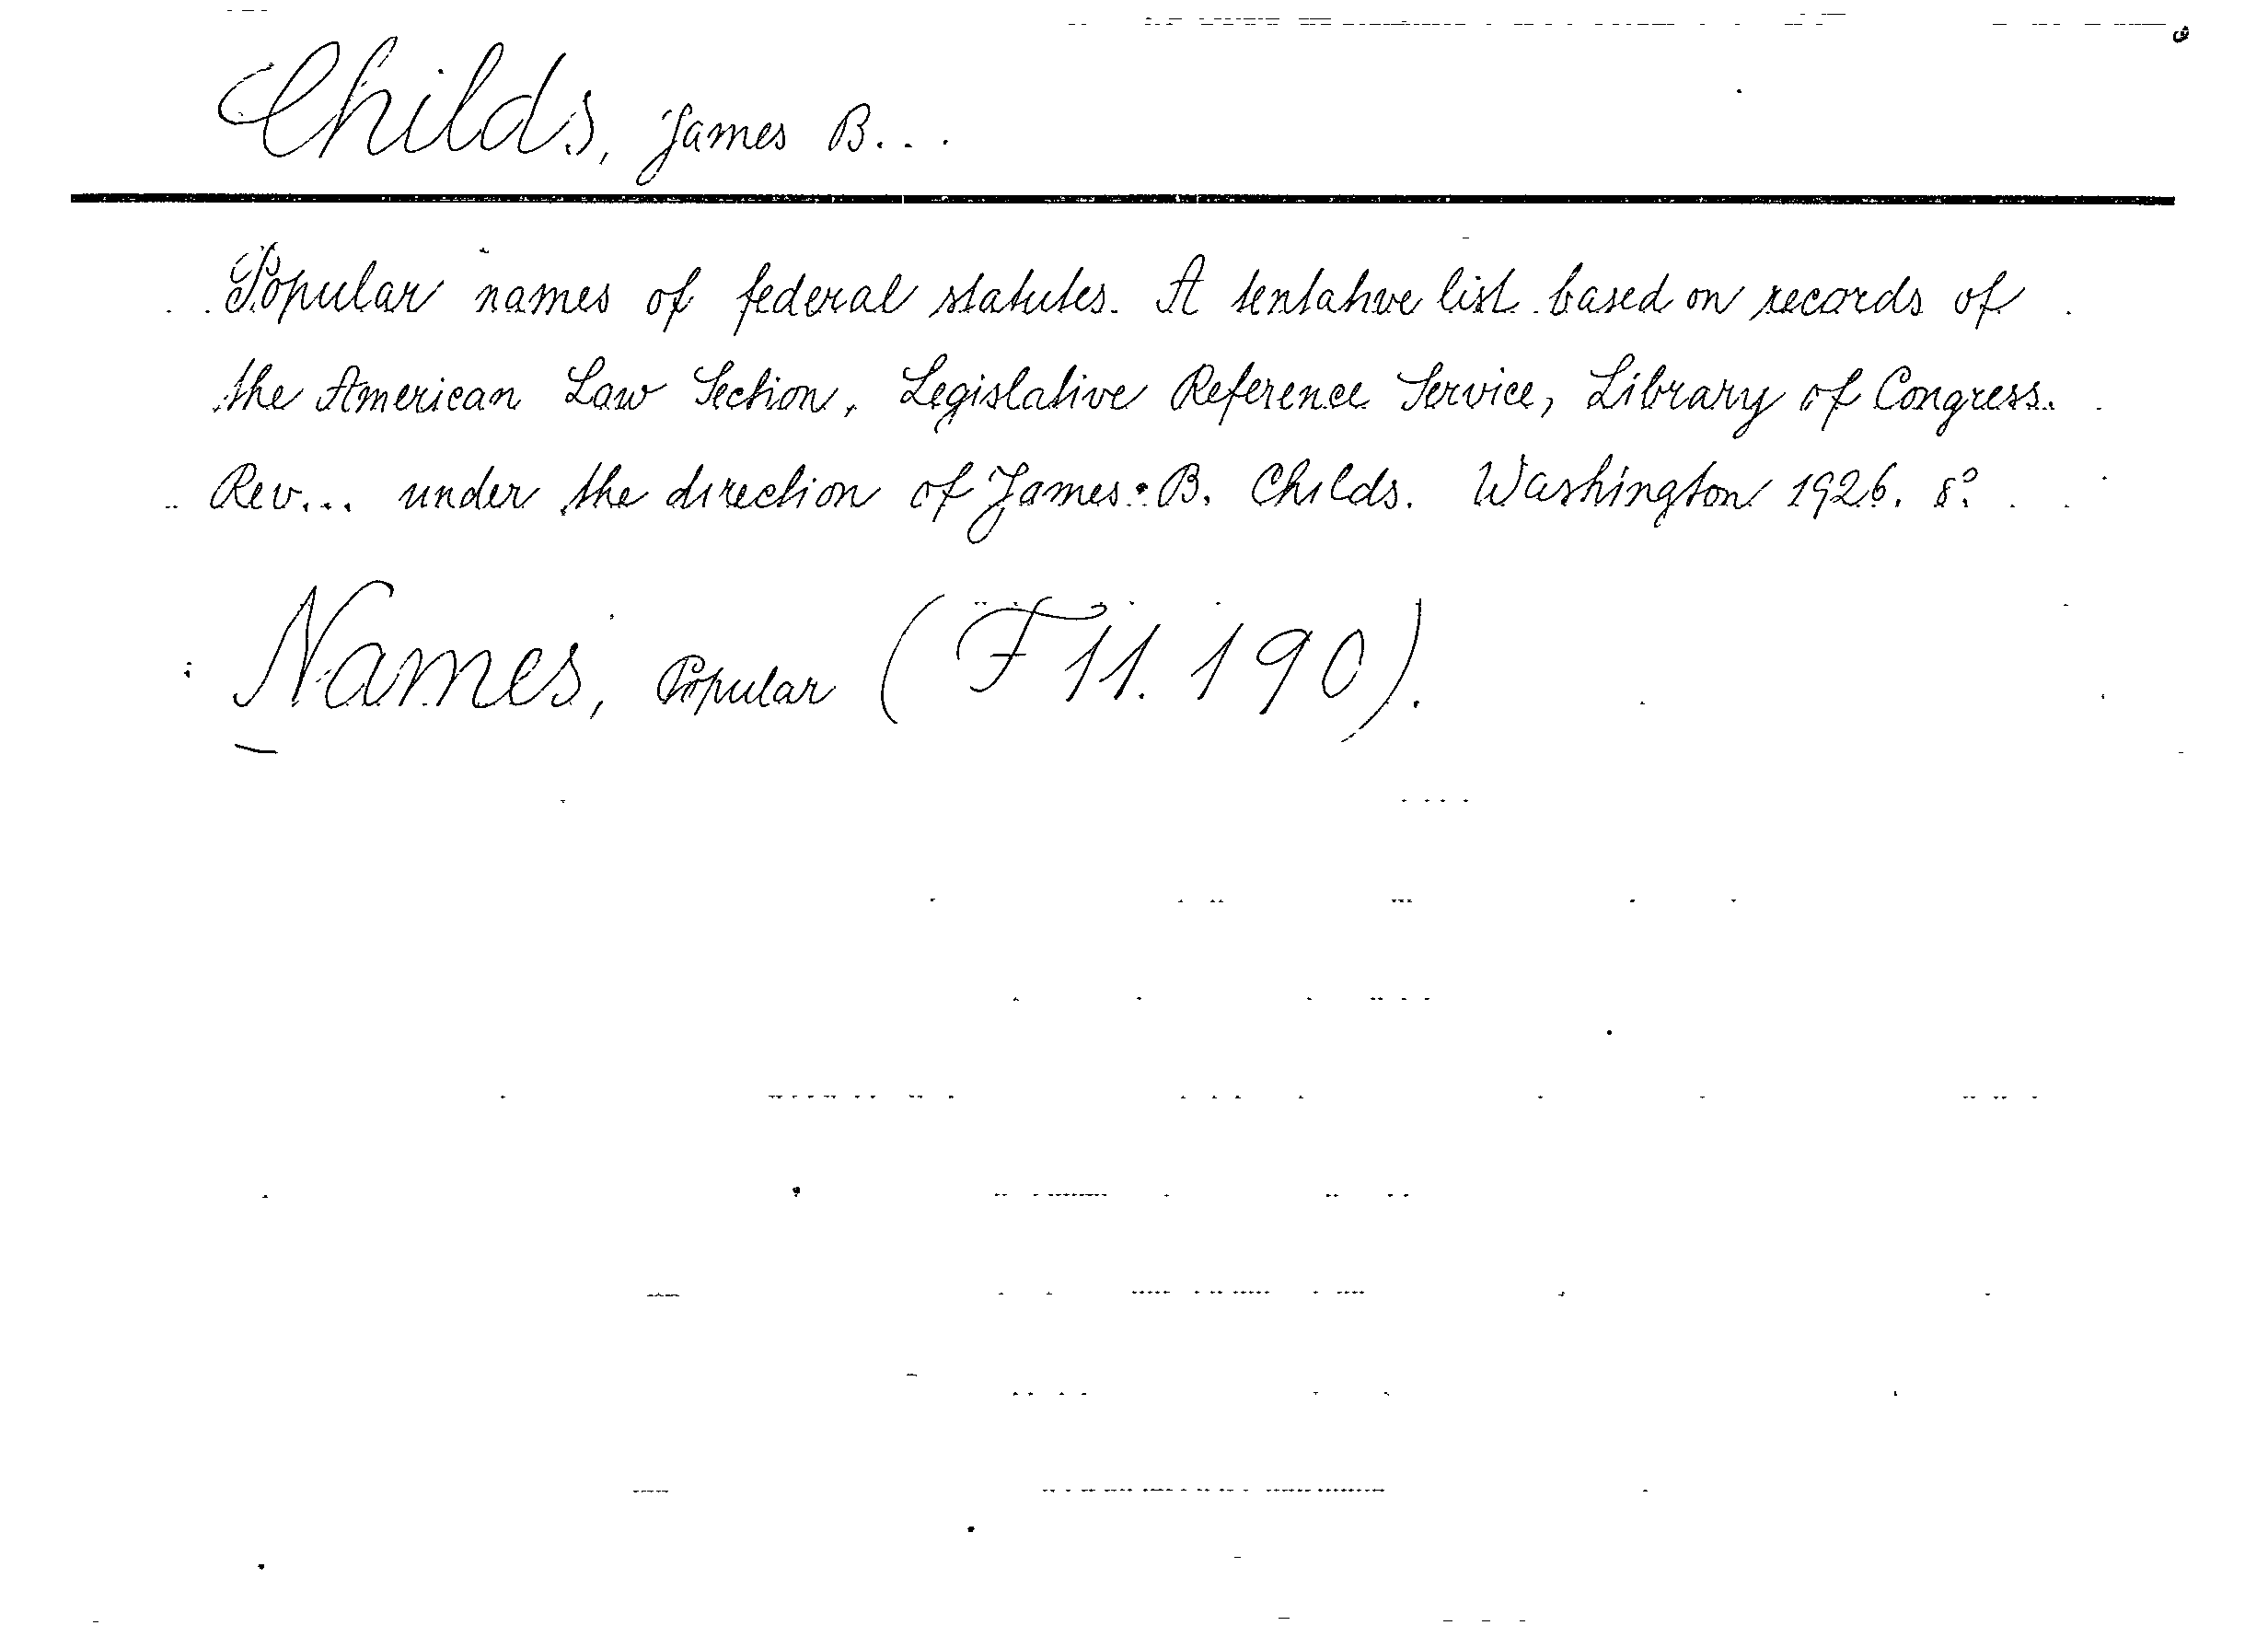 Childs, James B...
Popular names of federal statutes. A tentative list based on records of
the American Law Section, Legislative Reference Service, Library of Congress.
Rev... under the direction of James B. Childs. Washington 1926. 8°.
Names, Popular (F 11. 190).